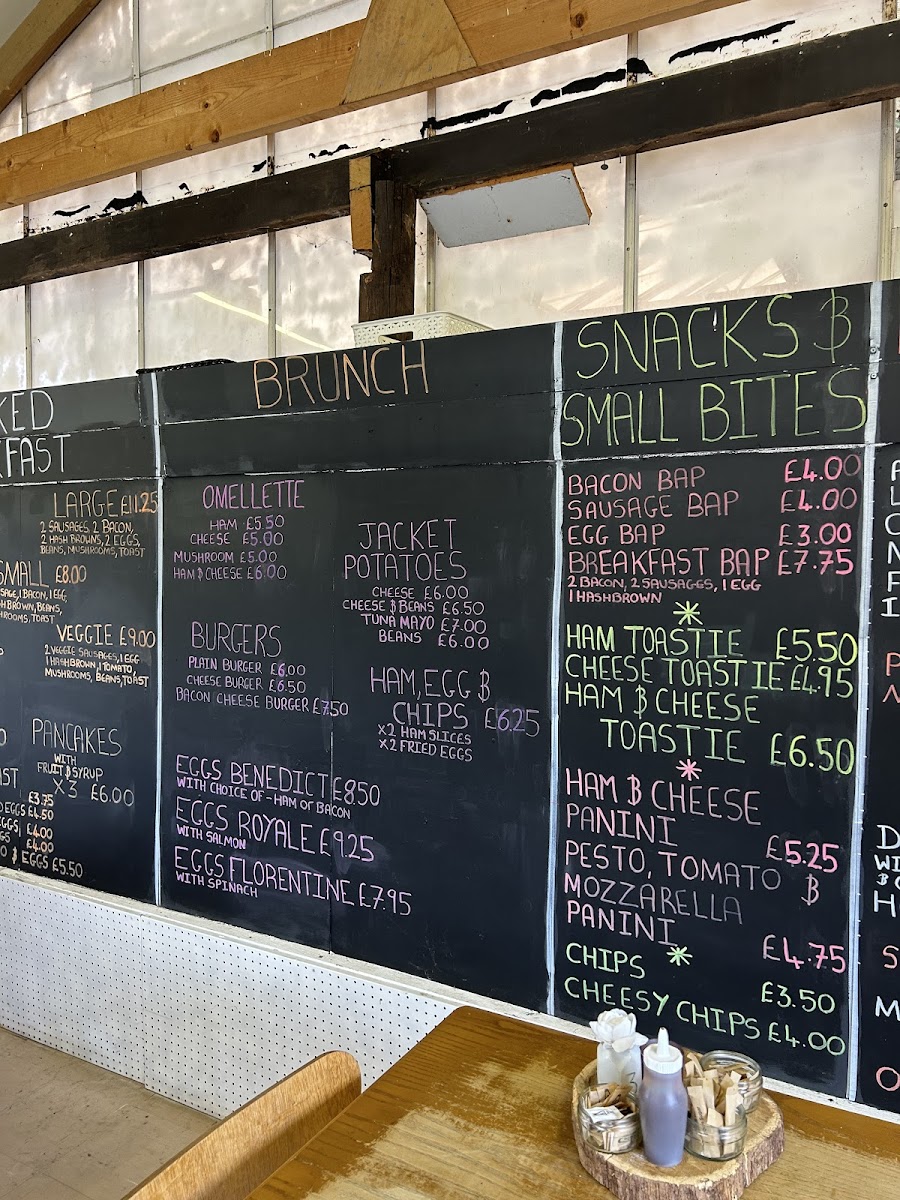 KED
FAST
LARGE £11.25
2 SAUSAGES, 2 BACON,
2 HASH BROWNS, 2 EGGS,
BEANS, MUSHROOMS, TOAST
SMALL £8.00
SAGE, 1 BACON, 1 EGG,
SH BROWN, BEANS,
HROOMS, TOAST
VEGGIE £9.00
2 VEGGIE SAUSAGES, 1 EGG
1 HASHBROWN, 1 TOMATO,
MUSHROOMS, BEANS, TOAST
PANCAKES
WITH
FRUIT & SYRUP
X3 £6.00
AST
£3.75
EGGS £4.50
EGGS, £4.00
GS £4.00
O & EGGS £5.50
BRUNCH
OMELLETTE
HAM £5.50
CHEESE £5.00
MUSHROOM £5.00
HAM & CHEESE £6.00
BURGERS
PLAIN BURGER £6.00
CHEESE BURGER £6.50
BACON CHEESE BURGER £7.50
EGGS BENEDICT £8.50
WITH CHOICE OF - HAM OF BACON
EGGS ROYALE £9.25
WITH SALMON
EGGS FLORENTINE £7.95
WITH SPINACH
JACKET
POTATOES
CHEESE £6.00
CHEESE & BEANS £6.50
TUNA MAYO £7.00
BEANS £6.00
HAM, EGG &
CHIPS £6.25
X2 HAM SLICES
X2 FRIED EGGS
SNACKS &
SMALL BITES
BACON BAP £4.00
SAUSAGE BAP £4.00
EGG BAP £3.00
BREAKFAST BAP £7.75
2 BACON, 2 SAUSAGES, 1 EGG
1 HASHBROWN
HAM TOASTIE £5.50
CHEESE TOASTIE £4.95
HAM & CHEESE
TOASTIE £6.50
HAM & CHEESE
PANINI £5.25
PESTO, TOMATO &
MOZZARELLA
PANINI £4.75
CHIPS £3.50
CHEESY CHIPS £4.00